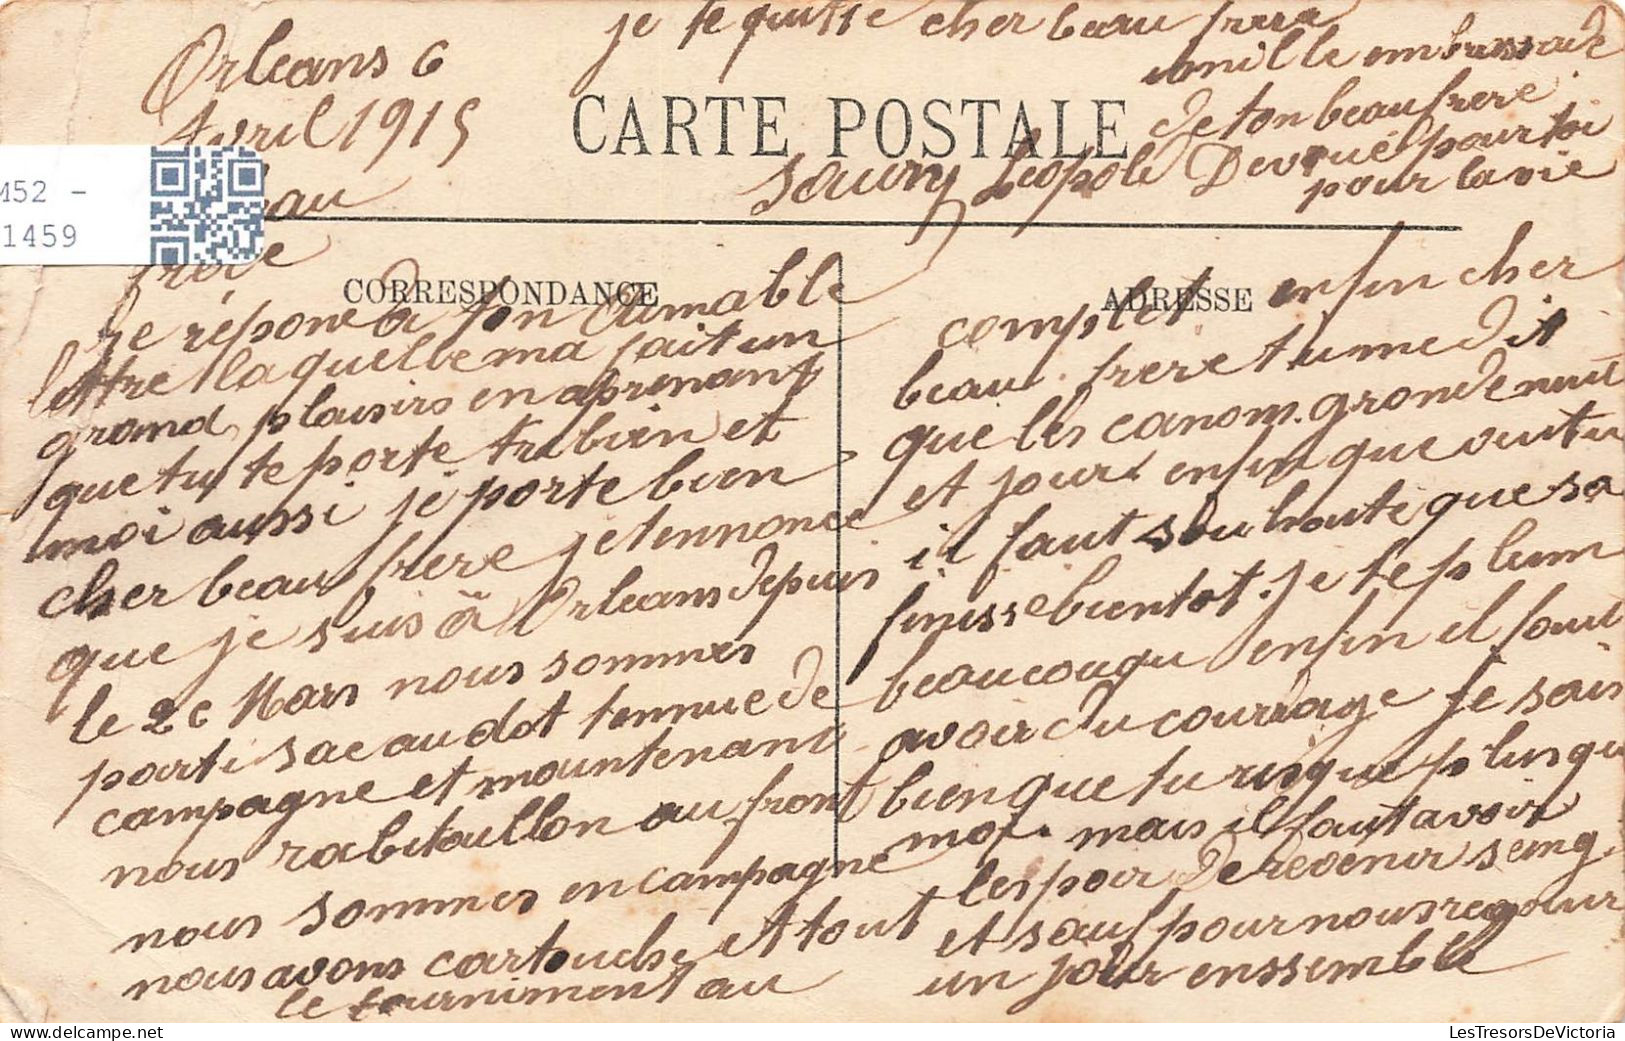 je te quitte cher beau frere
Orleans 6
Avril 1915
mille embrassade
CARTE POSTALE
de ton beau frere
Saury Leopole Devoué pour toi
pour la vie
M52 -
1459
frere
CORRESPONDANCE
ADRESSE
Je répone à ton aimable
lettre laquelle ma fait un
grand plaisirs en aprenant
que tu te porte tres bien et
moi aussi je porte bien
cher beau frere je tennonce
que je suis à Orleans depuis
le 20 Mars nous sommes
parti sac au dot tennue de
campagne et maintenant
nous rabitaullon au front
nous sommes en campagne
nous avons cartouche et tout
le fourniment au
complet enfin cher
beau frere tu me dit
que les canom gronde nuit
et jour enfin que veut tu
il faut souhaité que sa
finisse bientot. je te plum
beaucouqu enfin il faut
avoir du courrage je sais
bien que tu risque plus qu
moi. mais il faut avoir
lespoir de revenir seing
et sauf pour nous regouir
un jour enssemble
LesTresorsDeVictoria